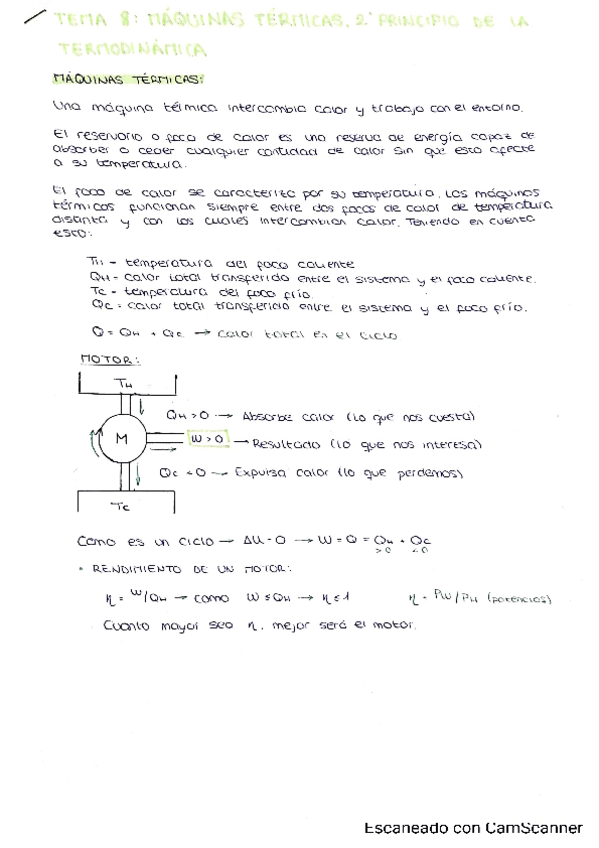 TEMA 8: MÁQUINAS TÉRMICAS. 2º PRINCIPIO DE LA
TERMODINÁMICA
MÁQUINAS TÉRMICAS:
Una máquina térmica intercambia calor y trabajo con el entorno.
El reservorio o foco de calor es una reserva de energía capaz de
absorber o ceder cualquier cantidad de calor sin que esto afecte
a su temperatura.
El foco de calor se caracteriza por su temperatura. Las máquinas
térmicas funcionan siempre entre dos focos de calor de temperatura
distinta y con los cuales intercambian calor. Teniendo en cuenta
esto:
TH - temperatura del foco caliente
QH - calor total transferido entre el sistema y el foco caliente.
TC - temperatura del foco frío.
QC - calor total transferido entre el sistema y el foco frío.
Q = QH + QC → calor total en el ciclo
MOTOR:
TH
QH > 0 → Absorbe calor (lo que nos cuesta)
M
W > 0 → Resultado (lo que nos interesa)
QC < 0 → Expulsa calor (lo que perdemos)
TC
Como es un ciclo → ΔU = 0 → W = Q = QH + QC
>0 <0
• RENDIMIENTO DE UN MOTOR:
η = W/QH → como W ≤ QH → η ≤ 1 η = PW/PH (potencias)
Cuanto mayor sea η, mejor será el motor.
Escaneado con CamScanner